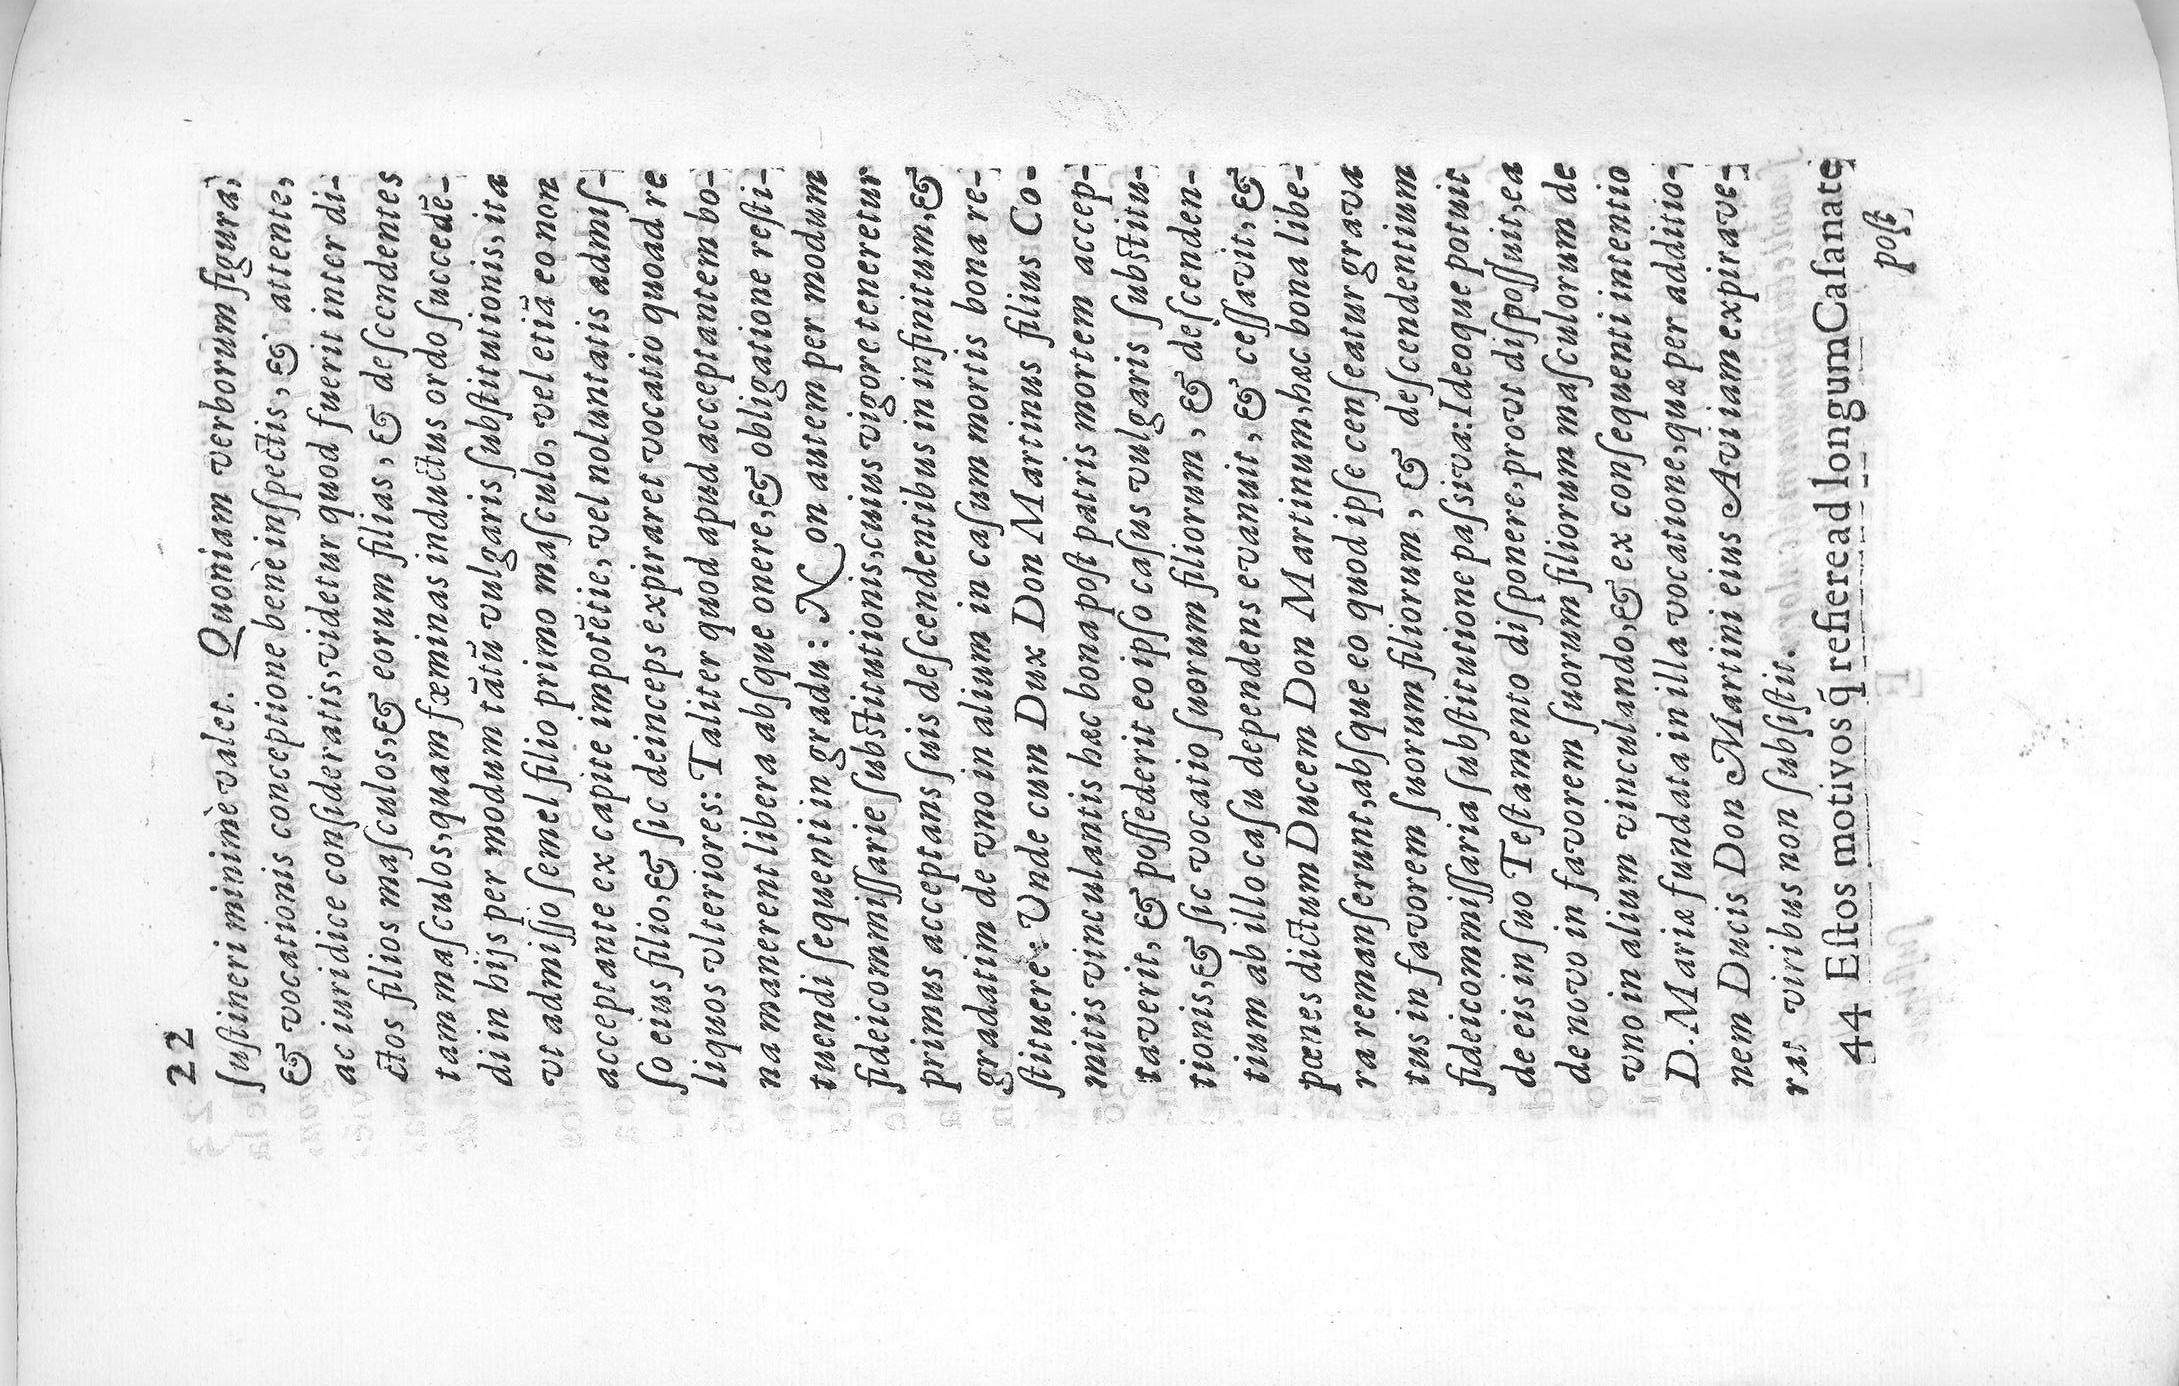 22
ſuſtineri minimè valet. Quoniam verborum figura,
& vocationis conceptione benè inſpectis, & attente,
ac iuridice conſideratis, videtur quod fuerit inter di-
ctos filios maſculos, & eorum filias, & deſcendentes
tam maſculos, quam fœminas inductus ordo ſuccedē-
di in hijs per modum tātū vulgaris ſubſtitutionis, ita
vt admiſſo ſemel filio primo maſculo, vel etiā eo non
acceptante ex capite impotētie, vel noluntatis admiſ-
ſo eius filio, & ſic deinceps expiraret vocatio quoad re
liquos vlteriores: Taliter quod apud acceptantem bo-
na manerent libera abſque onere, & obligatione reſti-
tuendi ſequenti in gradu: Non autem per modum
fideicommiſſarie ſubſtitutionis, cuius vigore teneretur
primus acceptans ſuis deſcendentibus in infinitum, &
gradatim de vno in alium in caſum mortis bona re-
ſtituere: Vnde cum Dux Don Martinus filius Co-
mitis vinculantis hæc bona poſt patris mortem accep-
taverit, & poſſederit eo ipſo caſus vulgaris ſubſtitu-
tionis, & ſic vocatio ſuorum filiorum, & deſcenden-
tium ab illo caſu dependens evanuit, & ceſſavit, &
pœnes dictum Ducem Don Martinum, hæc bona libe-
ra remanſerunt, abſque eo quod ipſe cenſeatur grava
tus in favorem ſuorum filiorum, & deſcendentium
fideicommiſſaria ſubſtitutione paſsiva: Ideoque potuit
de eis in ſuo Teſtamento diſponere, provt diſpoſſuit, ea
de novo in favorem ſuorum filiorum maſculorum de
vno in alium vinculando, & ex conſequenti intentio
D. Mariæ fundata in illa vocatione, quæ per additio-
nem Ducis Don Martini eius Avi iam expirave-
rat viribus non ſubſiſtit.
44 Eſtos motivos q̄ refiere ad longum Caſanate
poſt